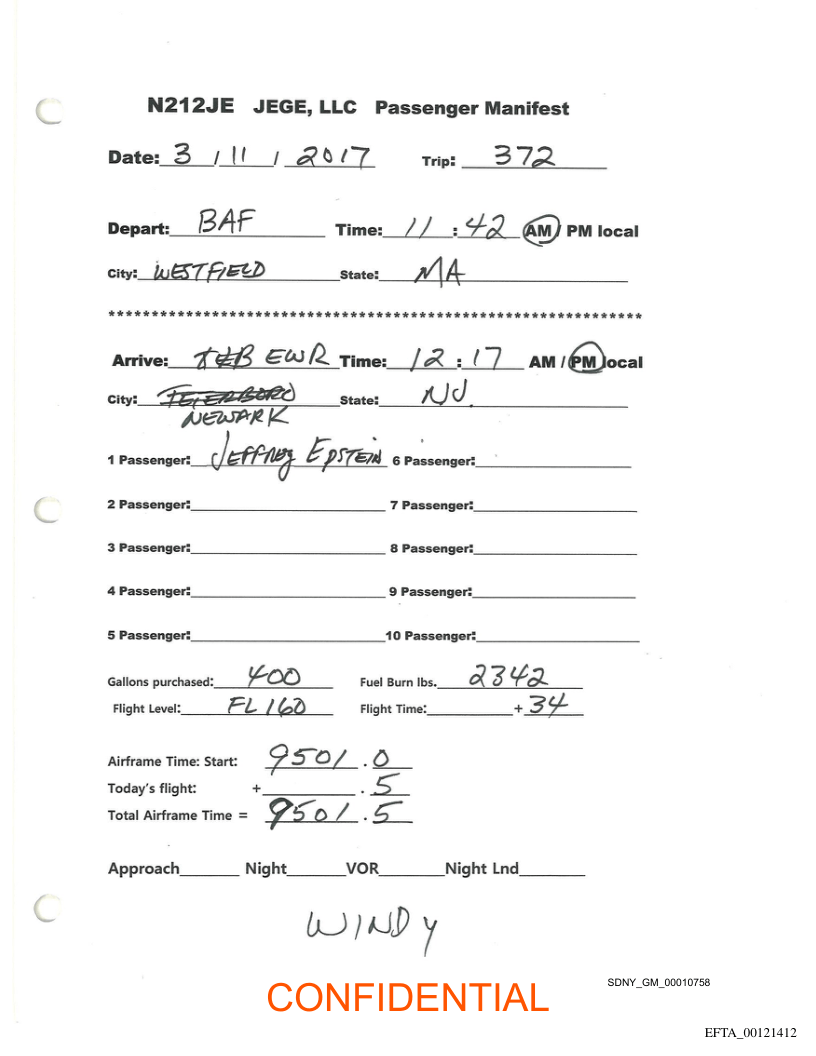 N212JE JEGE, LLC Passenger Manifest
Date: 3 / 11 / 2017 Trip: 372
Depart: BAF Time: 11 : 42 AM / PM local
City: WESTFIELD State: MA
*************************************************************
Arrive: TEB EWR Time: 12 : 17 AM / PM local
City: TETERBORO State: NJ
NEWARK
1 Passenger: JEFFREY EPSTEIN 6 Passenger:
2 Passenger: 7 Passenger:
3 Passenger: 8 Passenger:
4 Passenger: 9 Passenger:
5 Passenger: 10 Passenger:
Gallons purchased: 400 Fuel Burn lbs. 2342
Flight Level: FL 160 Flight Time: + 34
Airframe Time: Start: 9501 . 0
Today's flight: + . 5
Total Airframe Time = 9501 . 5
Approach Night VOR Night Lnd
WINDY
SDNY_GM_00010758
CONFIDENTIAL
EFTA_00121412